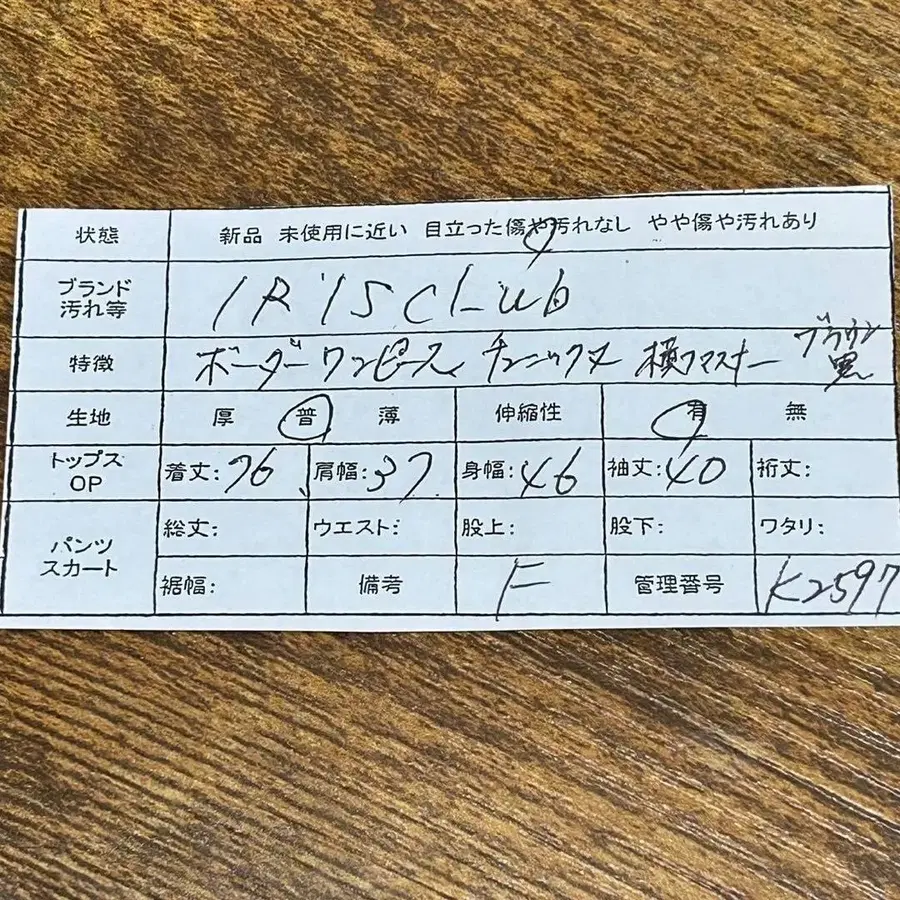 状態 新品 未使用に近い 目立った傷や汚れなし やや傷や汚れあり
ブランド 汚れ等 IR'IS CLub
特徴 ボーダーワンピース、チュニック丈 横ファスナー ブラウン 黒
生地 厚 普 薄 伸縮性 有 無
トップス OP 着丈:76 肩幅:37 身幅:46 袖丈:40 裄丈:
パンツ スカート 総丈: ウエスト: 股上: 股下: ワタリ:
裾幅: 備考 F 管理番号 K2597